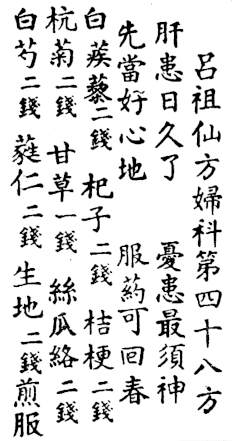 呂祖仙方婦科第四十八方
肝患日久了　憂患最須神
先當好心地　服葯可回春
白蒺藜二錢　杞子二錢　桔梗二錢
杭菊二錢　甘草一錢　絲瓜絡二錢
白芍二錢　蕤仁二錢　生地二錢煎服